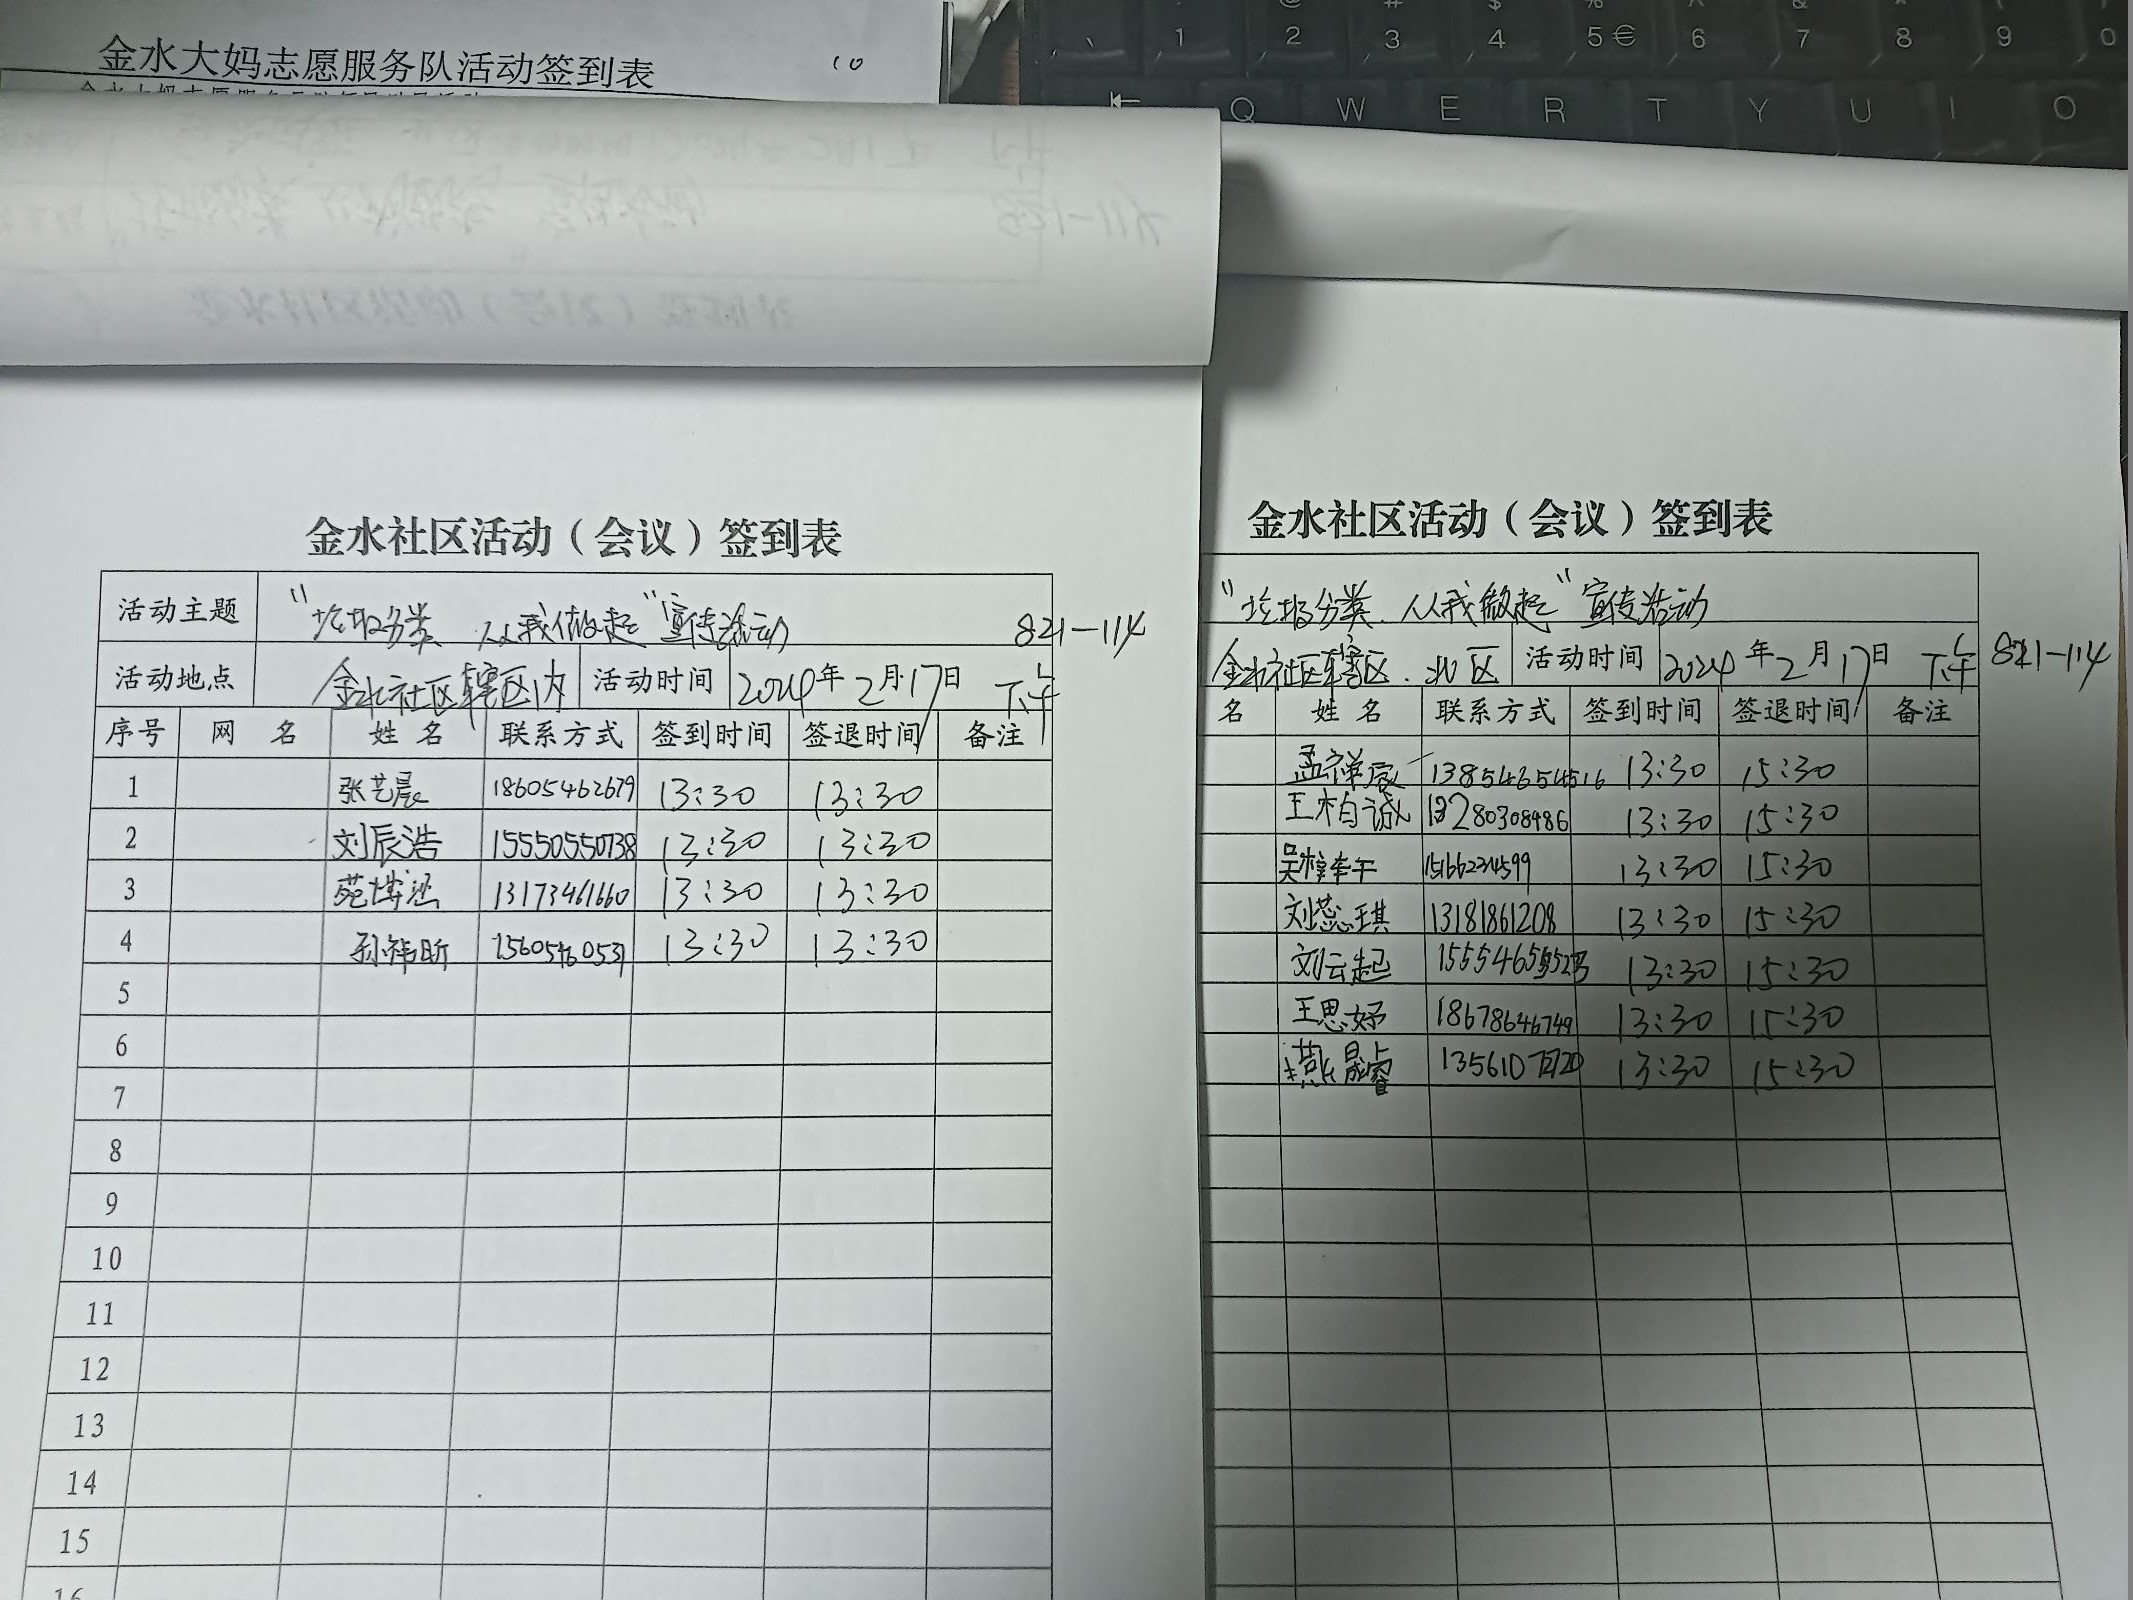 金水大妈志愿服务队活动签到表
10
金水社区活动（会议）签到表
活动主题 “垃圾分类 从我做起”宣传活动 821-114
活动地点 金水社区辖区内 活动时间 2024年2月17日 下午
序号 网 名 姓 名 联系方式 签到时间 签退时间 备注
1 张艺晨 18605462679 13:30 13:30
2 刘辰浩 15550550738 13:30 13:30
3 苑博涵 13173461660 13:30 13:30
4 孙祎昕 15605460531 13:30 13:30
5
6
7
8
9
10
11
12
13
14
15
16
金水社区活动（会议）签到表
“垃圾分类、从我做起”宣传活动
金水社区辖区.北区 活动时间 2024年2月17日 下午 821-114
名 姓 名 联系方式 签到时间 签退时间 备注
孟祥宸 13854654516 13:30 15:30
王柏诚 13280308486 13:30 15:30
13:30 15:30
刘蕊琪 13181861208 13:30 15:30
刘云起 13:30 15:30
王思妤 18678646749 13:30 15:30
燕晟睿 13:30 15:30
@ # $ % ^ & *
1 2 3 4 5 € 6 7 8 9 0
Q W E R T Y U I O